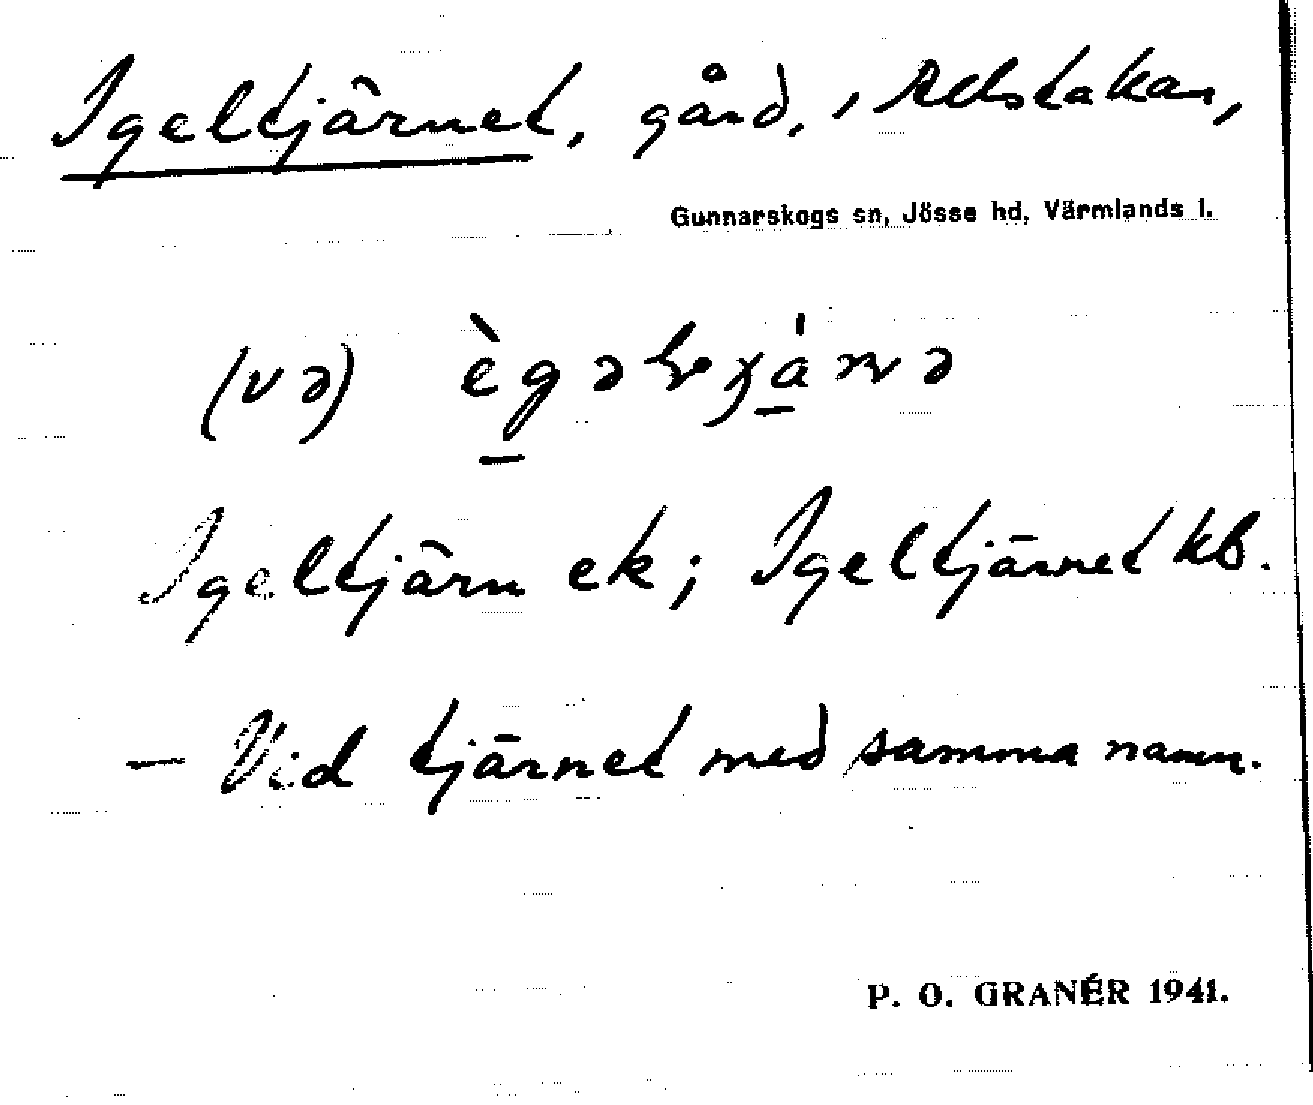 Igeltjärnet, gård, i Adstakan,
Gunnarskogs sn, Jösse hd, Värmlands l.
(və)
Igeltjärn ek; Igeltjärnet kb.
— Vid tjärnet med samma namn.
P. O. GRANÉR 1941.